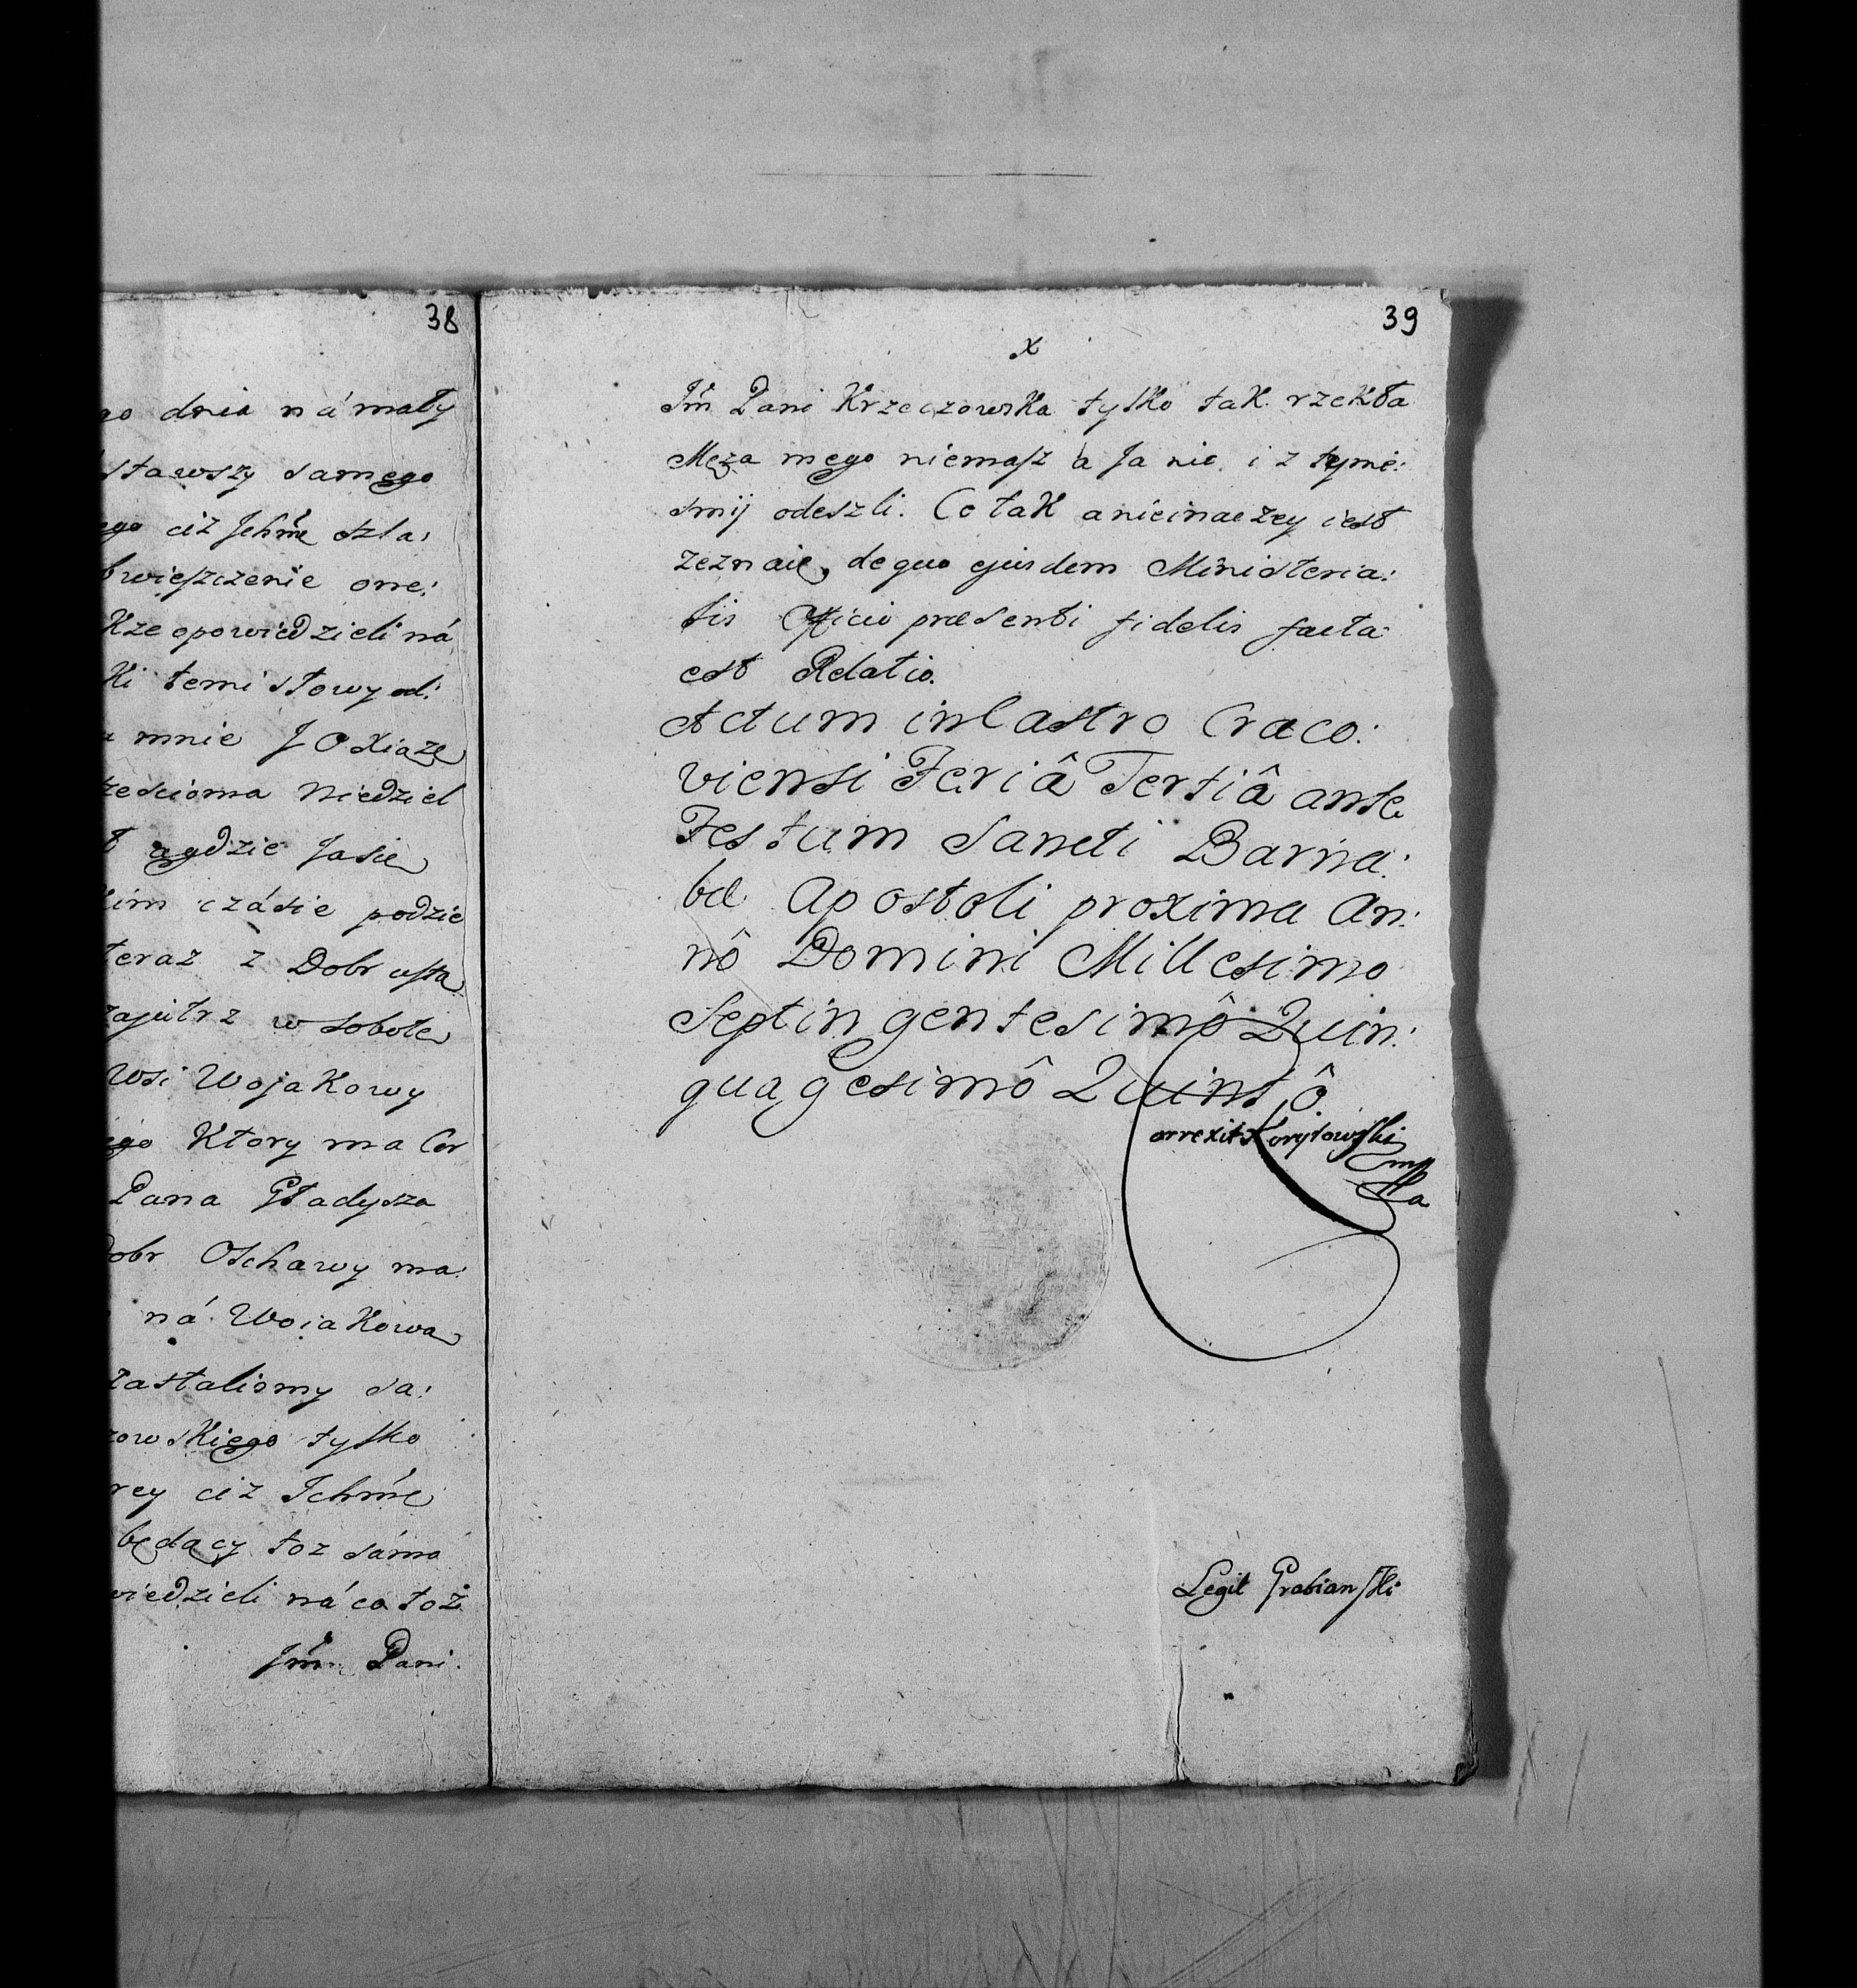 38
dnia ná mały
stawszy samego
ciż Jchḿe szla:
bwieszczenie one:
Kże opowiedzieli ná
Ki temi słowy od:
mnie J O Xiąze
Niedziel
agdzie Jasię
czásie podzie
teraz z Dobr
zajutrz w sobotę
Wsi Wojakowy
Ktory ma Cor
Pana Gładysza
Dobr Oschawy ma:
ná Woiakową
zastalismy sa:
zowskiego tylko
rey ciż Jchḿe
będący toż sámo
wiedzieli ná co toż
Jḿ Pani.
39
x
Jḿ Pani Krzeczowska tylko tak rzekła
Męza mego niemasz a Ja nic i z tymé:
smij odeszli. Co tak anieinaczey iest
zeznaie, de quo ejusdem Ministeria:
lis Officio præsenti fidelis facta
est Relatio.
Actum in Castro Craco:
viensi Feriâ Tertiâ ante
Festum Sancti Barna:
bæ Apostoli proxima An:
nô Domini Millesimo
Septingentesimô Quin:
quagesimô Quintô
Correxit Korytowski
mp
Legit Grabianski